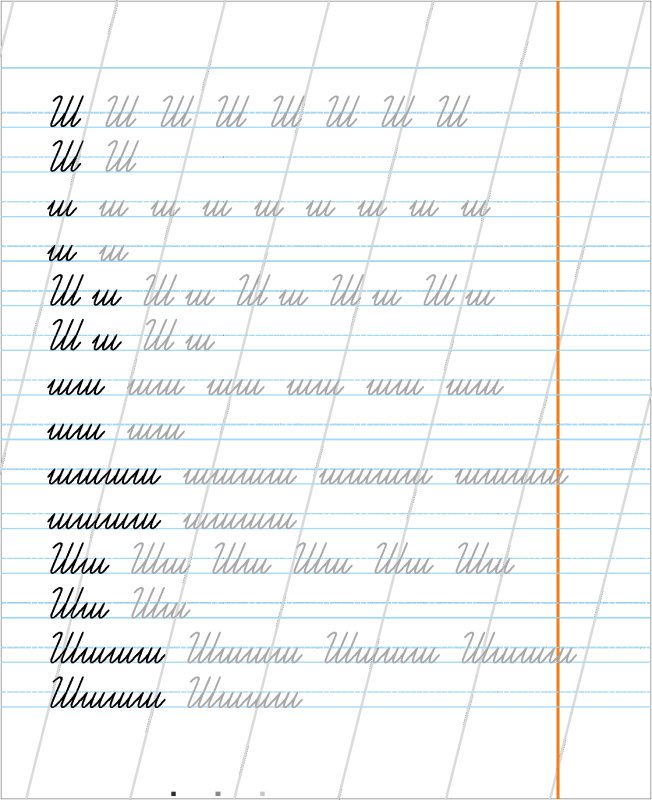 Ш Ш Ш Ш Ш Ш Ш Ш
Ш Ш
ш ш ш ш ш ш ш ш ш
ш ш
Ш ш Ш ш Ш ш Ш ш Ш ш
Ш ш Ш ш
шш шш шш шш шш шш
шш шш
шшшш шшшш шшшш шшшш
шшшш шшшш
Шш Шш Шш Шш Шш Шш
Шш Шш
Шшшш Шшшш Шшшш Шшшш
Шшшш Шшшш